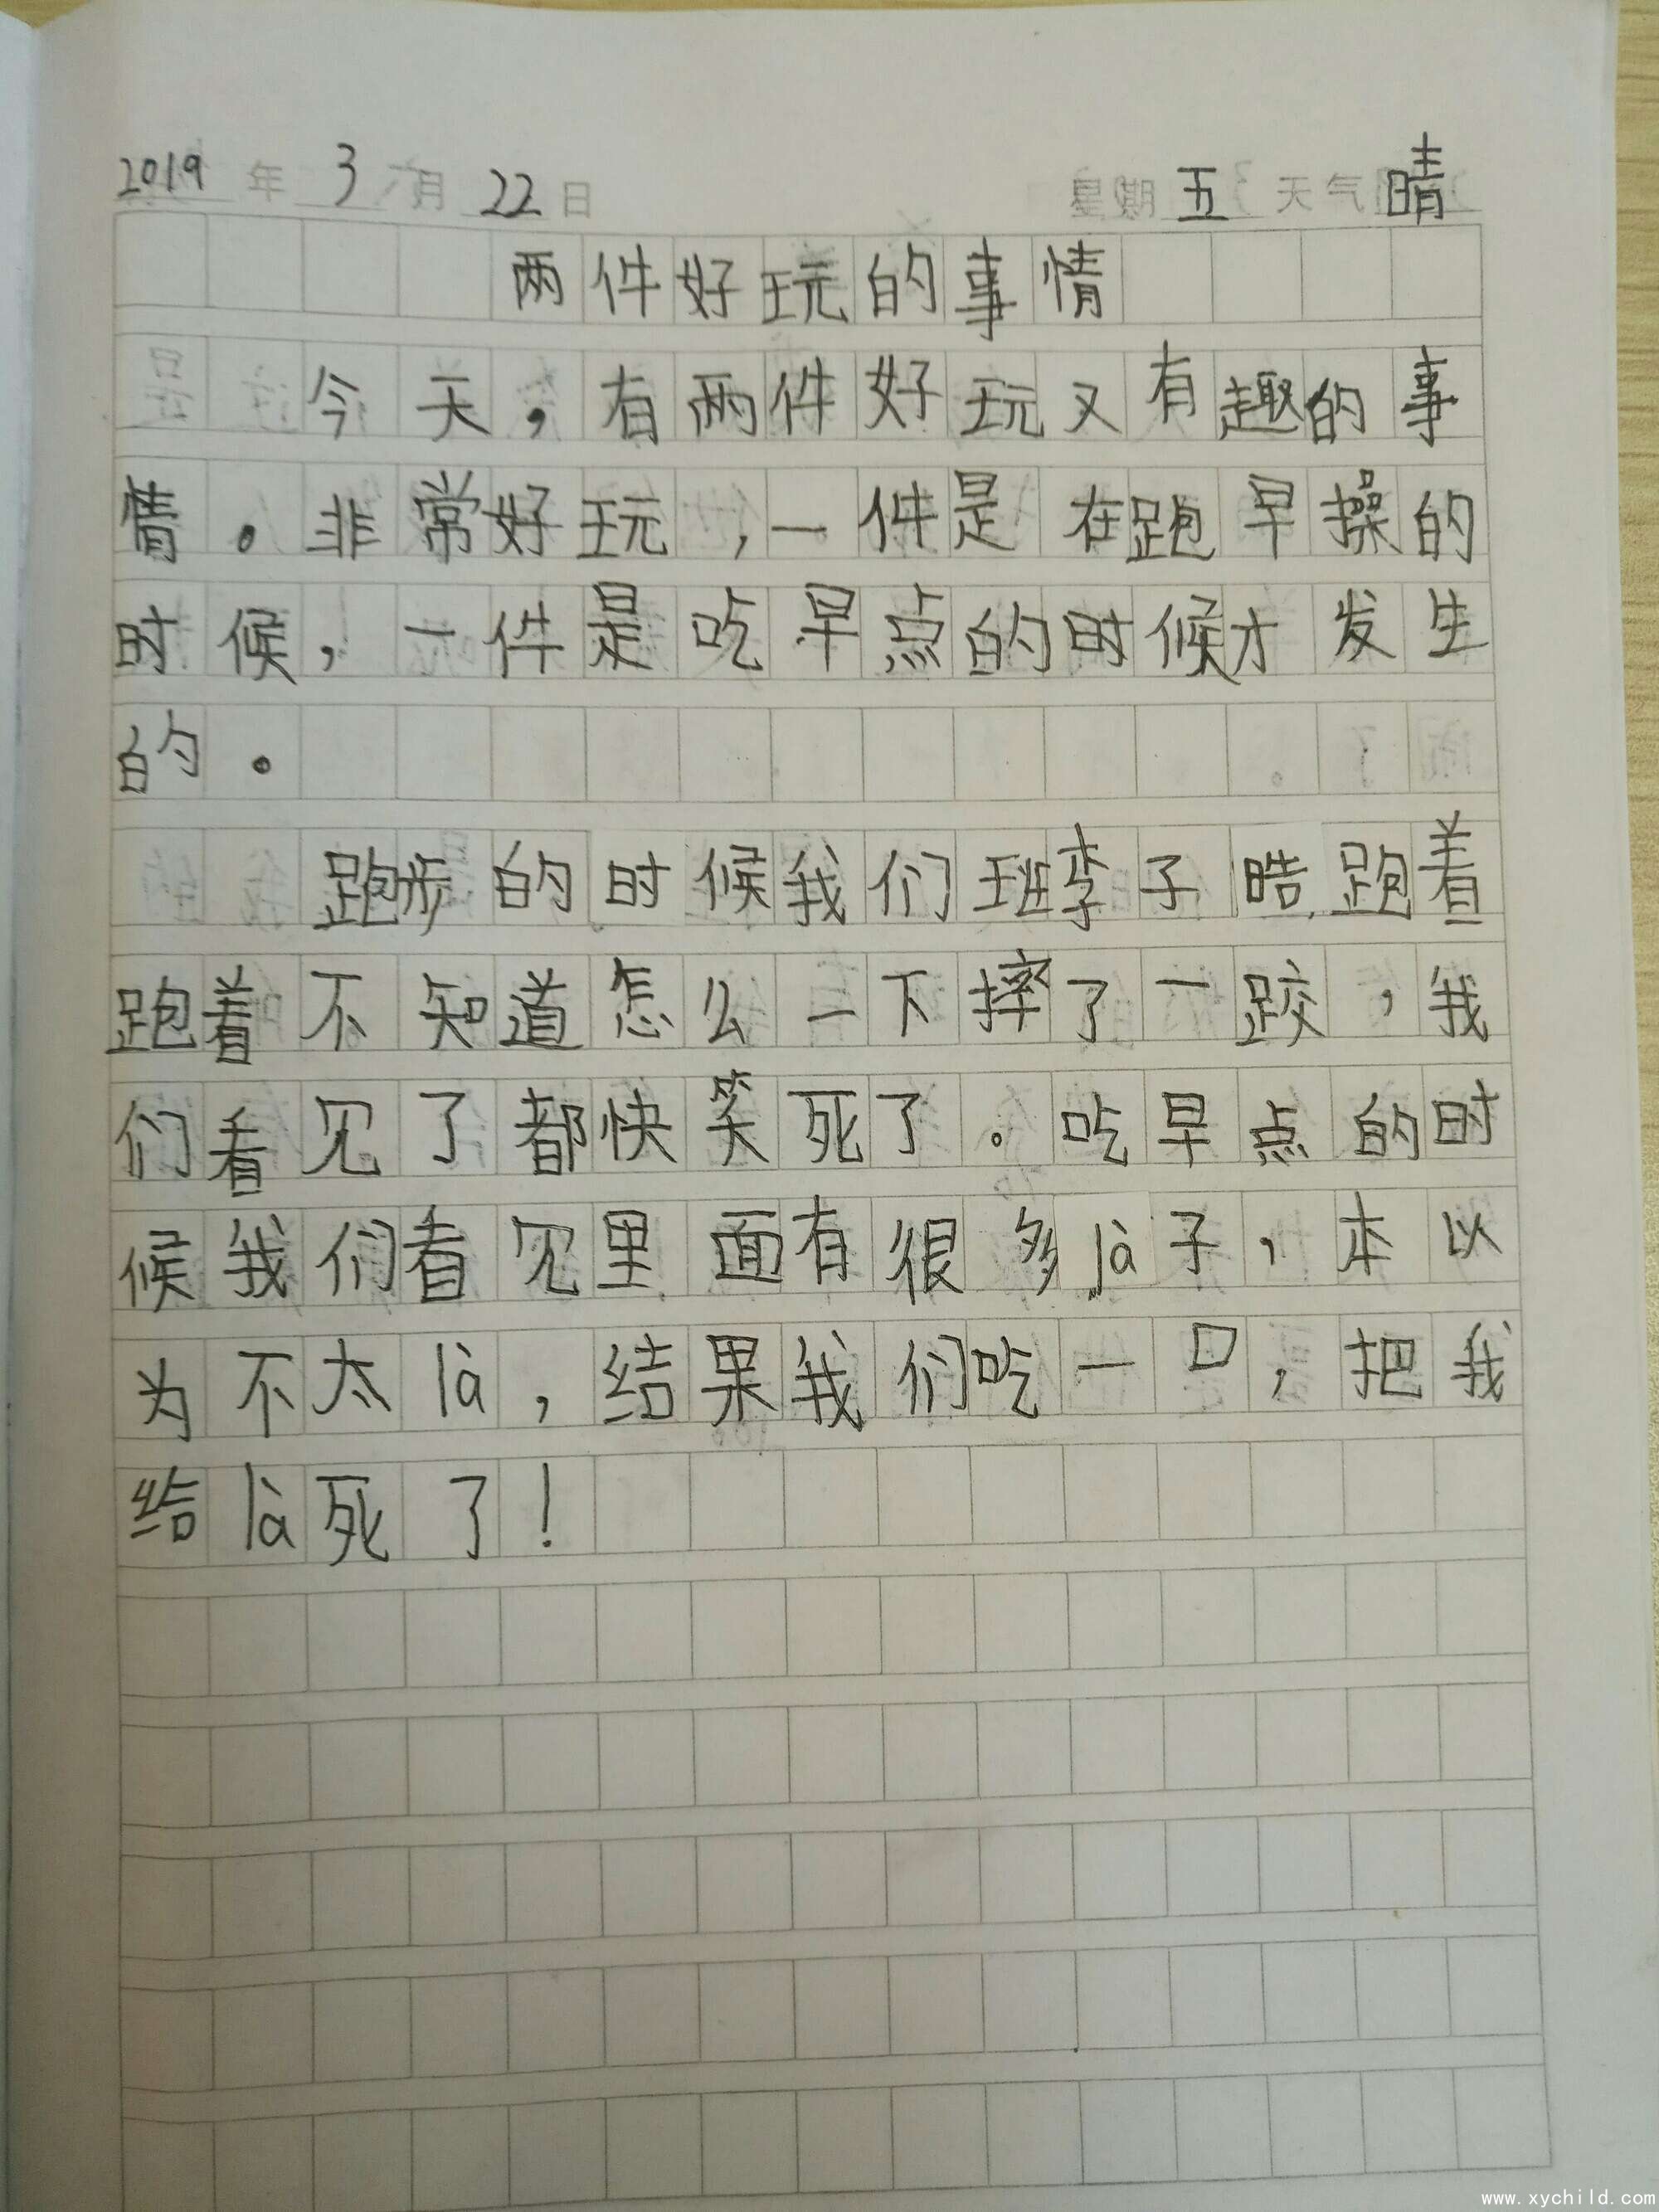 2019年3月22日 星期五 天气晴
两件好玩的事情
今天，有两件好玩又有趣的事
情。非常好玩，一件是在跑早操的
时候，一件是吃早点的时候才发生
的。
跑步的时候我们班李子晧跑着
跑着不知道怎么一下摔了一跤，我
们看见了都快笑死了。吃早点的时
候我们看见里面有很多là子，本以
为不太là，结果我们吃一口，把我
给là死了！
www.xychild.com